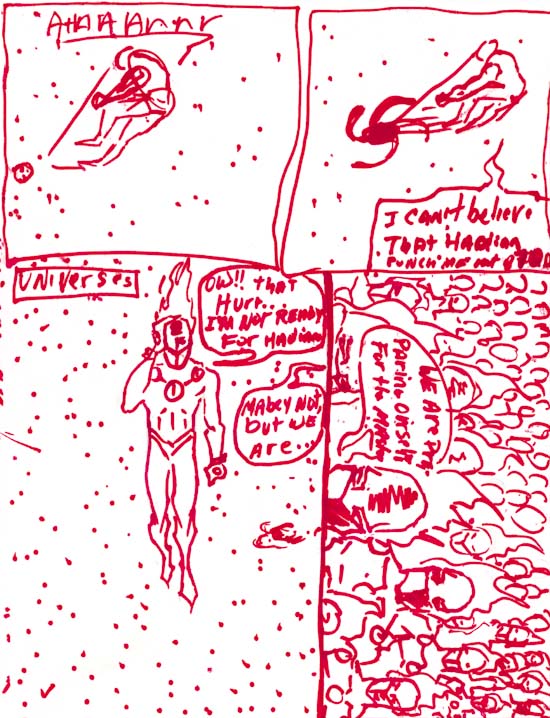 AHAAArrr
I can't believe
That Hadian
Punch me out
Universes
OW!! that
Hurt..
I'm Not Ready
For Hadian
Mabey Not,
but we
Are...
We Are Pre
Paring OurSelf
For the